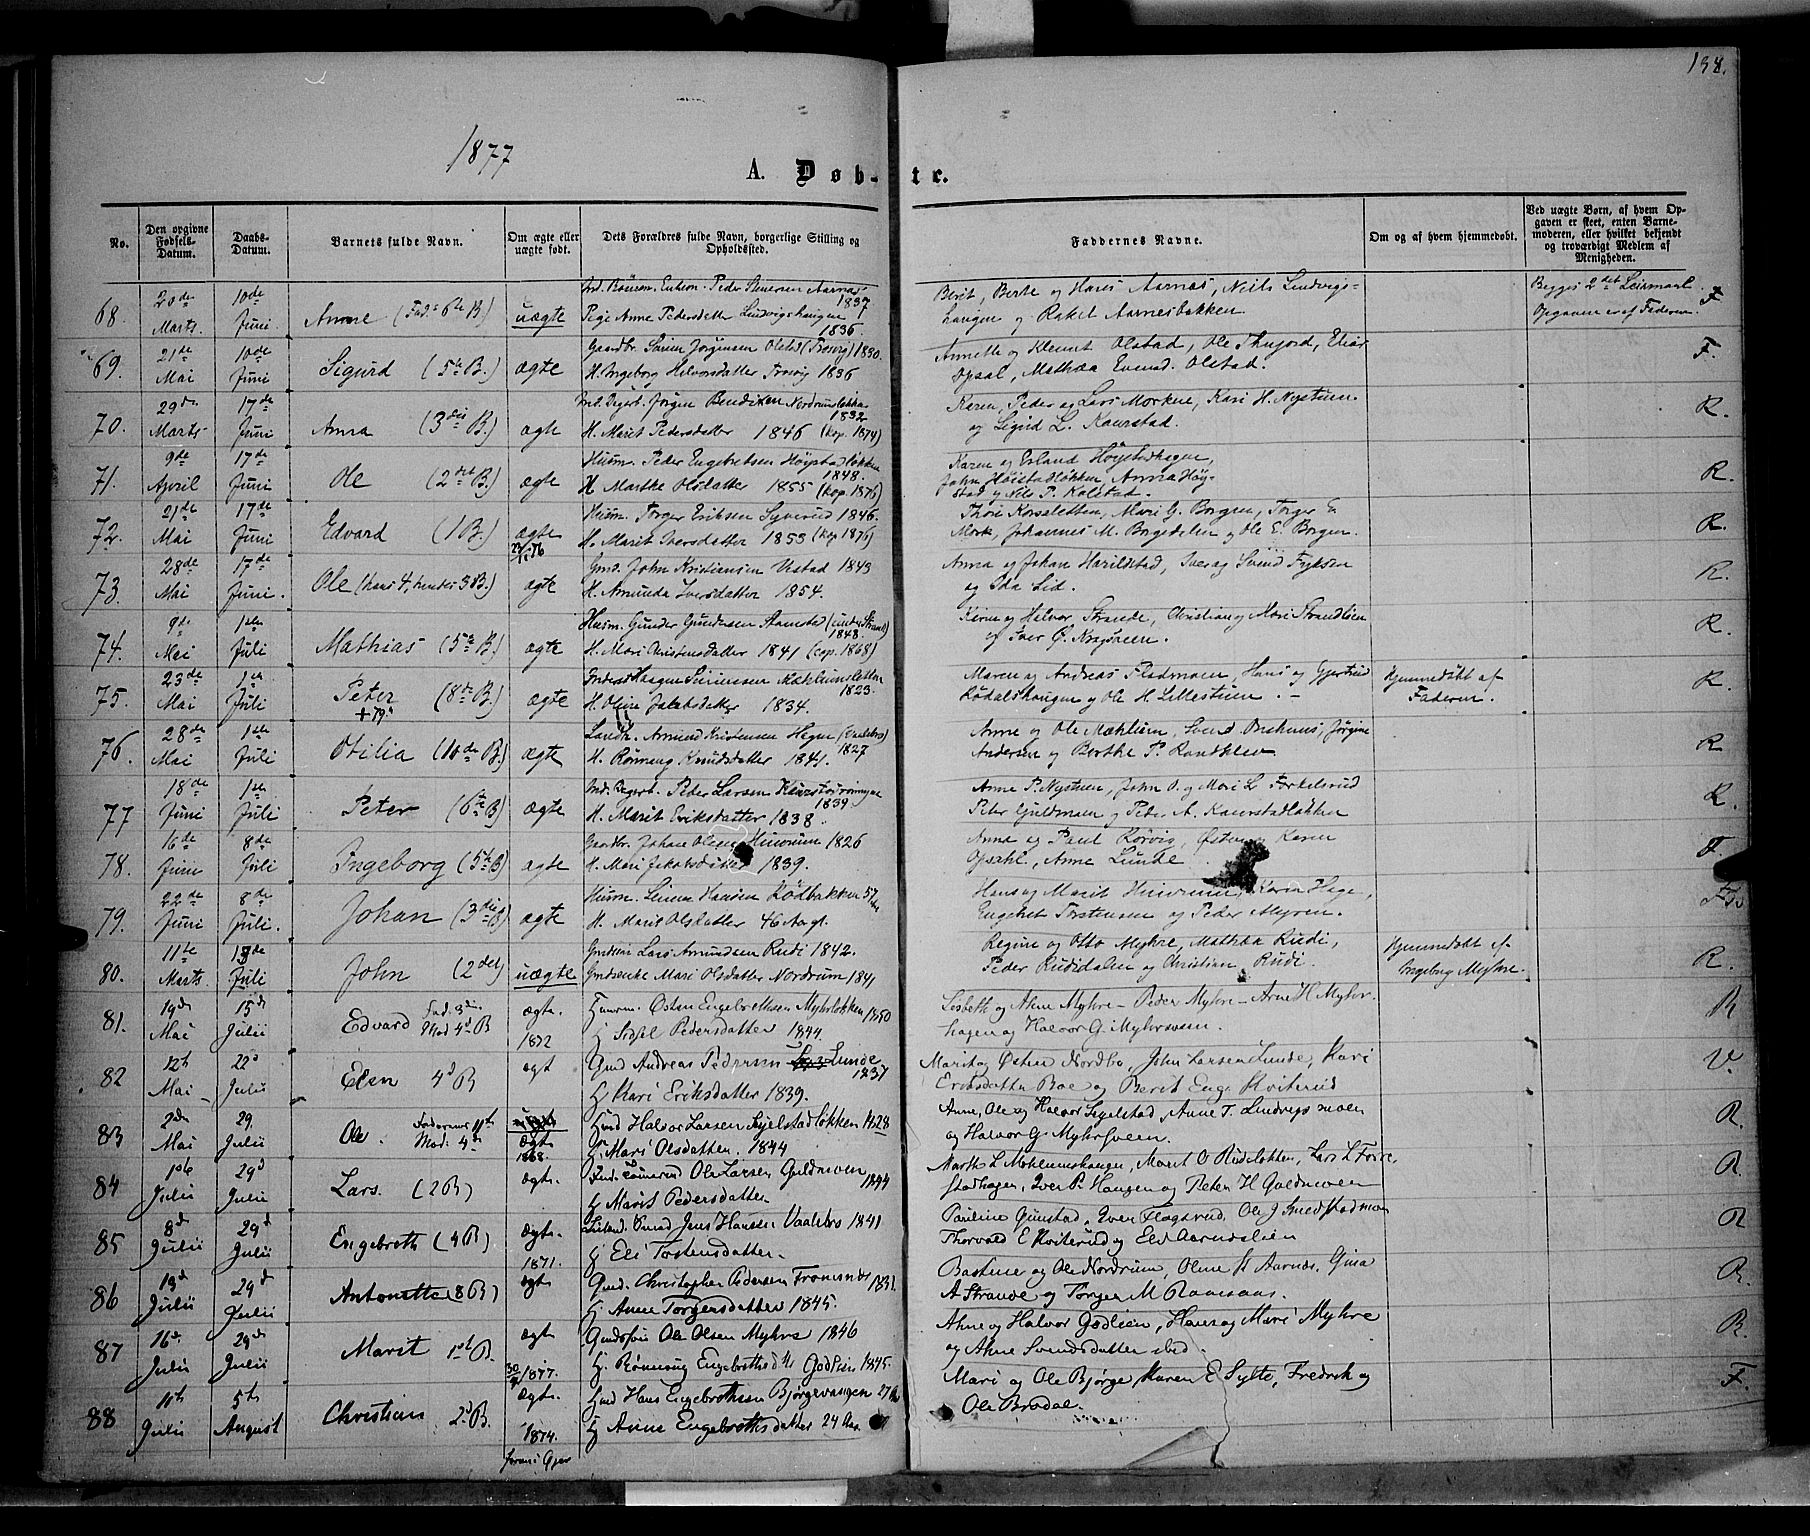 138.
1877
A. Døb-te.
No.
Den opgivne Fødsels-Datum.
Daabs-Datum.
Barnets fulde Navn.
Om ægte eller uægte født.
Dets Forældres fulde Navn, borgerlige Stilling og Opholdssted.
Faddernes Navne.
Om og af hvem hjemmedøbt.
Ved uægte Børn, af hvem Opgaven er skeet, enten Barnemoderen, eller hvilket bekjendt og troværdigt Medlem af Menigheden.
68. 20de Marts. 10de Juni Anne (Fad. 6te B) uægte
Peder Simensen Aarnæs 1837
Pige Anne Pedersdatter Lindvigshaugen 1836.
Berit, Berte og Hans Aarnæs, Nils Lindvigs-
haugen og Rakel Aarnesbakken
Begges 2det Leiermaal.
Opgaven er af Faderen. F
69. 21de Mai 10de Juni Sigurd (5te B.) ægte
Gaardbr. Søren Jørgensen Olstad (Trosvig) 1830.
H. Ingeborg Helvorsdatter Trosvig 1836
Annette og Klemet Olstad, Ole Thujord, Elias
Opsal, Mathea Evensd. Olstad. F.
70. 29de Marts 17de Juni Anna (3die B.) ægte
Jørgen Bendixen Nordrumsløkken 1832
H. Marit Pedersdatter 1846 (kop. 1874)
Karen, Peder og Lars Morken, Kari H. Nystuen
og Sigrid L. Kaurstad. R.
71. 9de April 17de Juni Ole (2det B.) ægte
Husm. Peder Engebretsen Høystadløkken 1848.
H. Marthe Olsdatter 1855 (kop. 1876)
Karen og Erland Høystadhagen,
John Høistadløkken, Anna Høy-
stad og Nils P. Kolstad. R.
72. 21de Mai 17de Juni Edvard (1 B.) ægte
Husm. Torger Eriksen Syverud 1846.
H. Marit Iversdatter 1853 (kop 1876)
Thore Korsletten, Mari G. Borgen, Torger E.
Mork, Johannes M. Borgedalen og Ole E. Borgen. R.
73. 28de Mai 17de Juni. Ole (hans 4, hendes 3 B.) ægte
Gmd. John Kristiansen Ulstad 1843
H. Amunda Iversdatter 1854.
Anna og Johan Harildstad, Iver og Svend Fryksen
og Ida Lid. R.
74. 9de Mai 1ste Juli Mathias (5te B) ægte
Husm. Gunder Gundersen Stamstad (under Strande) 1848.
H. Mari Christensdatter 1841 (cop. 1868)
Karen og Helvor Strande, Christian og Mari Strandlien
og Iver Ø. Kragsveen. R.
75. 23de Mai 1ste Juli Peter (8de B.) +79 ægte
Inderst Haagen Simensen Mæhlumsletten 1823.
H. Oline Jakobsdatter 1834.
Maren og Andreas Fladmoen, Hans og Gjertrud
Rødalshaugen og Ole H. Lillestuen. -
Hjemmedøbt af
Faderen. R.
76. 28de Mai 1ste Juli Otilia (10de B.) ægte
Landh. Amund Kristensen Hegne (Vaalebro) 1827
H. Rønnaug Knudsdatter 1841.
Anne og Ole Mæhlum, Svend Onshuus, Jørgine
Andersen og Berthe P. Randklev R
77 18de Juni 1ste Juli Peter (6te B) ægte
Peder Larsen Kaurstadrøningen 1839
H. Marit Eriksdatter 1838.
Anne P. Nystuen, John O. og Mari L Forkelsrud
Peter Guldmoen og Peder A. Kaurstadløkken R.
78. 16de Juni 8de Juli Ingeborg (5te B) ægte
Gaardbr. Johan Olsen Hunorum 1826
H. Mari Jakobsdatter 1839.
Anna og Paul Rørvig, Østen og Karen
Opsahl, Anne Lunde. F.
79. 22de Juni 8de Juli. Johan (3die B) ægte
Husm. Simen Hansen Rødbakken 57
H. Marit Olsdatter 46 Aar gl.
Hans og Marit Hunorum, Karen Hage,
Engebret Torstensen og Peder Myren.
80. 11te Marts 13de Juli John (2det) uægte
Gmdsøn Lars Amundsen Rudi 1842.
Gmdsenke Mari Olsdatter Nordrum 1841
Regine og Otto Myhre, Mathea Rudi,
Peder Rudidalen og Christian Rudi.
Hjemmedøbt af
Ingebrg Myhre. R.
81. 19de Mai 15de Julii Edvard Fad. 3die Mod 4de B ægte. 1872
Huusm. Østen Engebrethsen Myhrløkken 1850
H Sidsel Pedersdatter 1844.
Lisbeth og Ane Myhre - Peder Myhre - Arne H Myhr-
hagen og Halvor G. Myhrsveen. R
82 12te Mai 22de Julii Elen 4de B ægt
Gmd Andreas Pedersen Lunde 1837
H Kari Eriksdatter 1839.
Marit og Østen Nordbo, John Larsen Lunde, Kari
Eriksdatter Boe og Berit Enge Kviterud V.
83 2den Mai 29 Julii Ole. Faderens 11te Mod. 4de ægte 1868.
Gmd Halvor Larsen Sylstadløkken 1828
H. Mari Olsdatter. 1844
Anne, Ole og Halvor Sylstad, Anne T. Lindvigsmoen
og Halvor G. Myhrsveen. R.
84 1ste Julii 29de Julii Lars. (2 B) ægte.
Ole Larsen Guldmoen 1844
H Marit Pedersdatter.
Marthe L Mæhlumshaugen, Marit O Rudiløkken, Lars L Forre-
stadhagen, Iver P. Haugen og Peter H Guldmoen R
85 8de Julii 29de Julii Engebreth (4 B) ægte. 1871.
Smed Jens Hansen Vaalebro 1841
H Eli Torstensdatter.
Pauline Gunstad, Iver Flagsrud, Ole J Smedstadmoen
Thorvald E Kviterud og Eli Aarnæslien R
86 19de Julii 29de Julii Antonette (8 B) ægt
Gmd. Christopher Pedersen Fromsnæs 1831.
H Anne Torgersdatter 1845.
Bastine og Ole Nordrum, Oline H Aarnæs, Gina
A Strande og Torger M Ramsaas. R.
87 16de Julii 29de Julii Marit 1ste B. ægte 1877.
Gmdsøn Ole Olsen Myhre 1846
H. Rønnaug Engebrethsdtr Godlien 1845.
Ane og Halvor Godlien, Hans og Mari Myhre
og Ane Svendsdatter ibid. R.
88 11te Julii 5te August Christian 2de B. ægte. 1874.
Gmd Hans Engebrethsen Bjørgevangen 27 Aar
H Anne Engebrethsdatter 24 Aar.
Mari og Ole Bjørge, Karen E Sylte, Fredrik og
Ole Bredal. F.